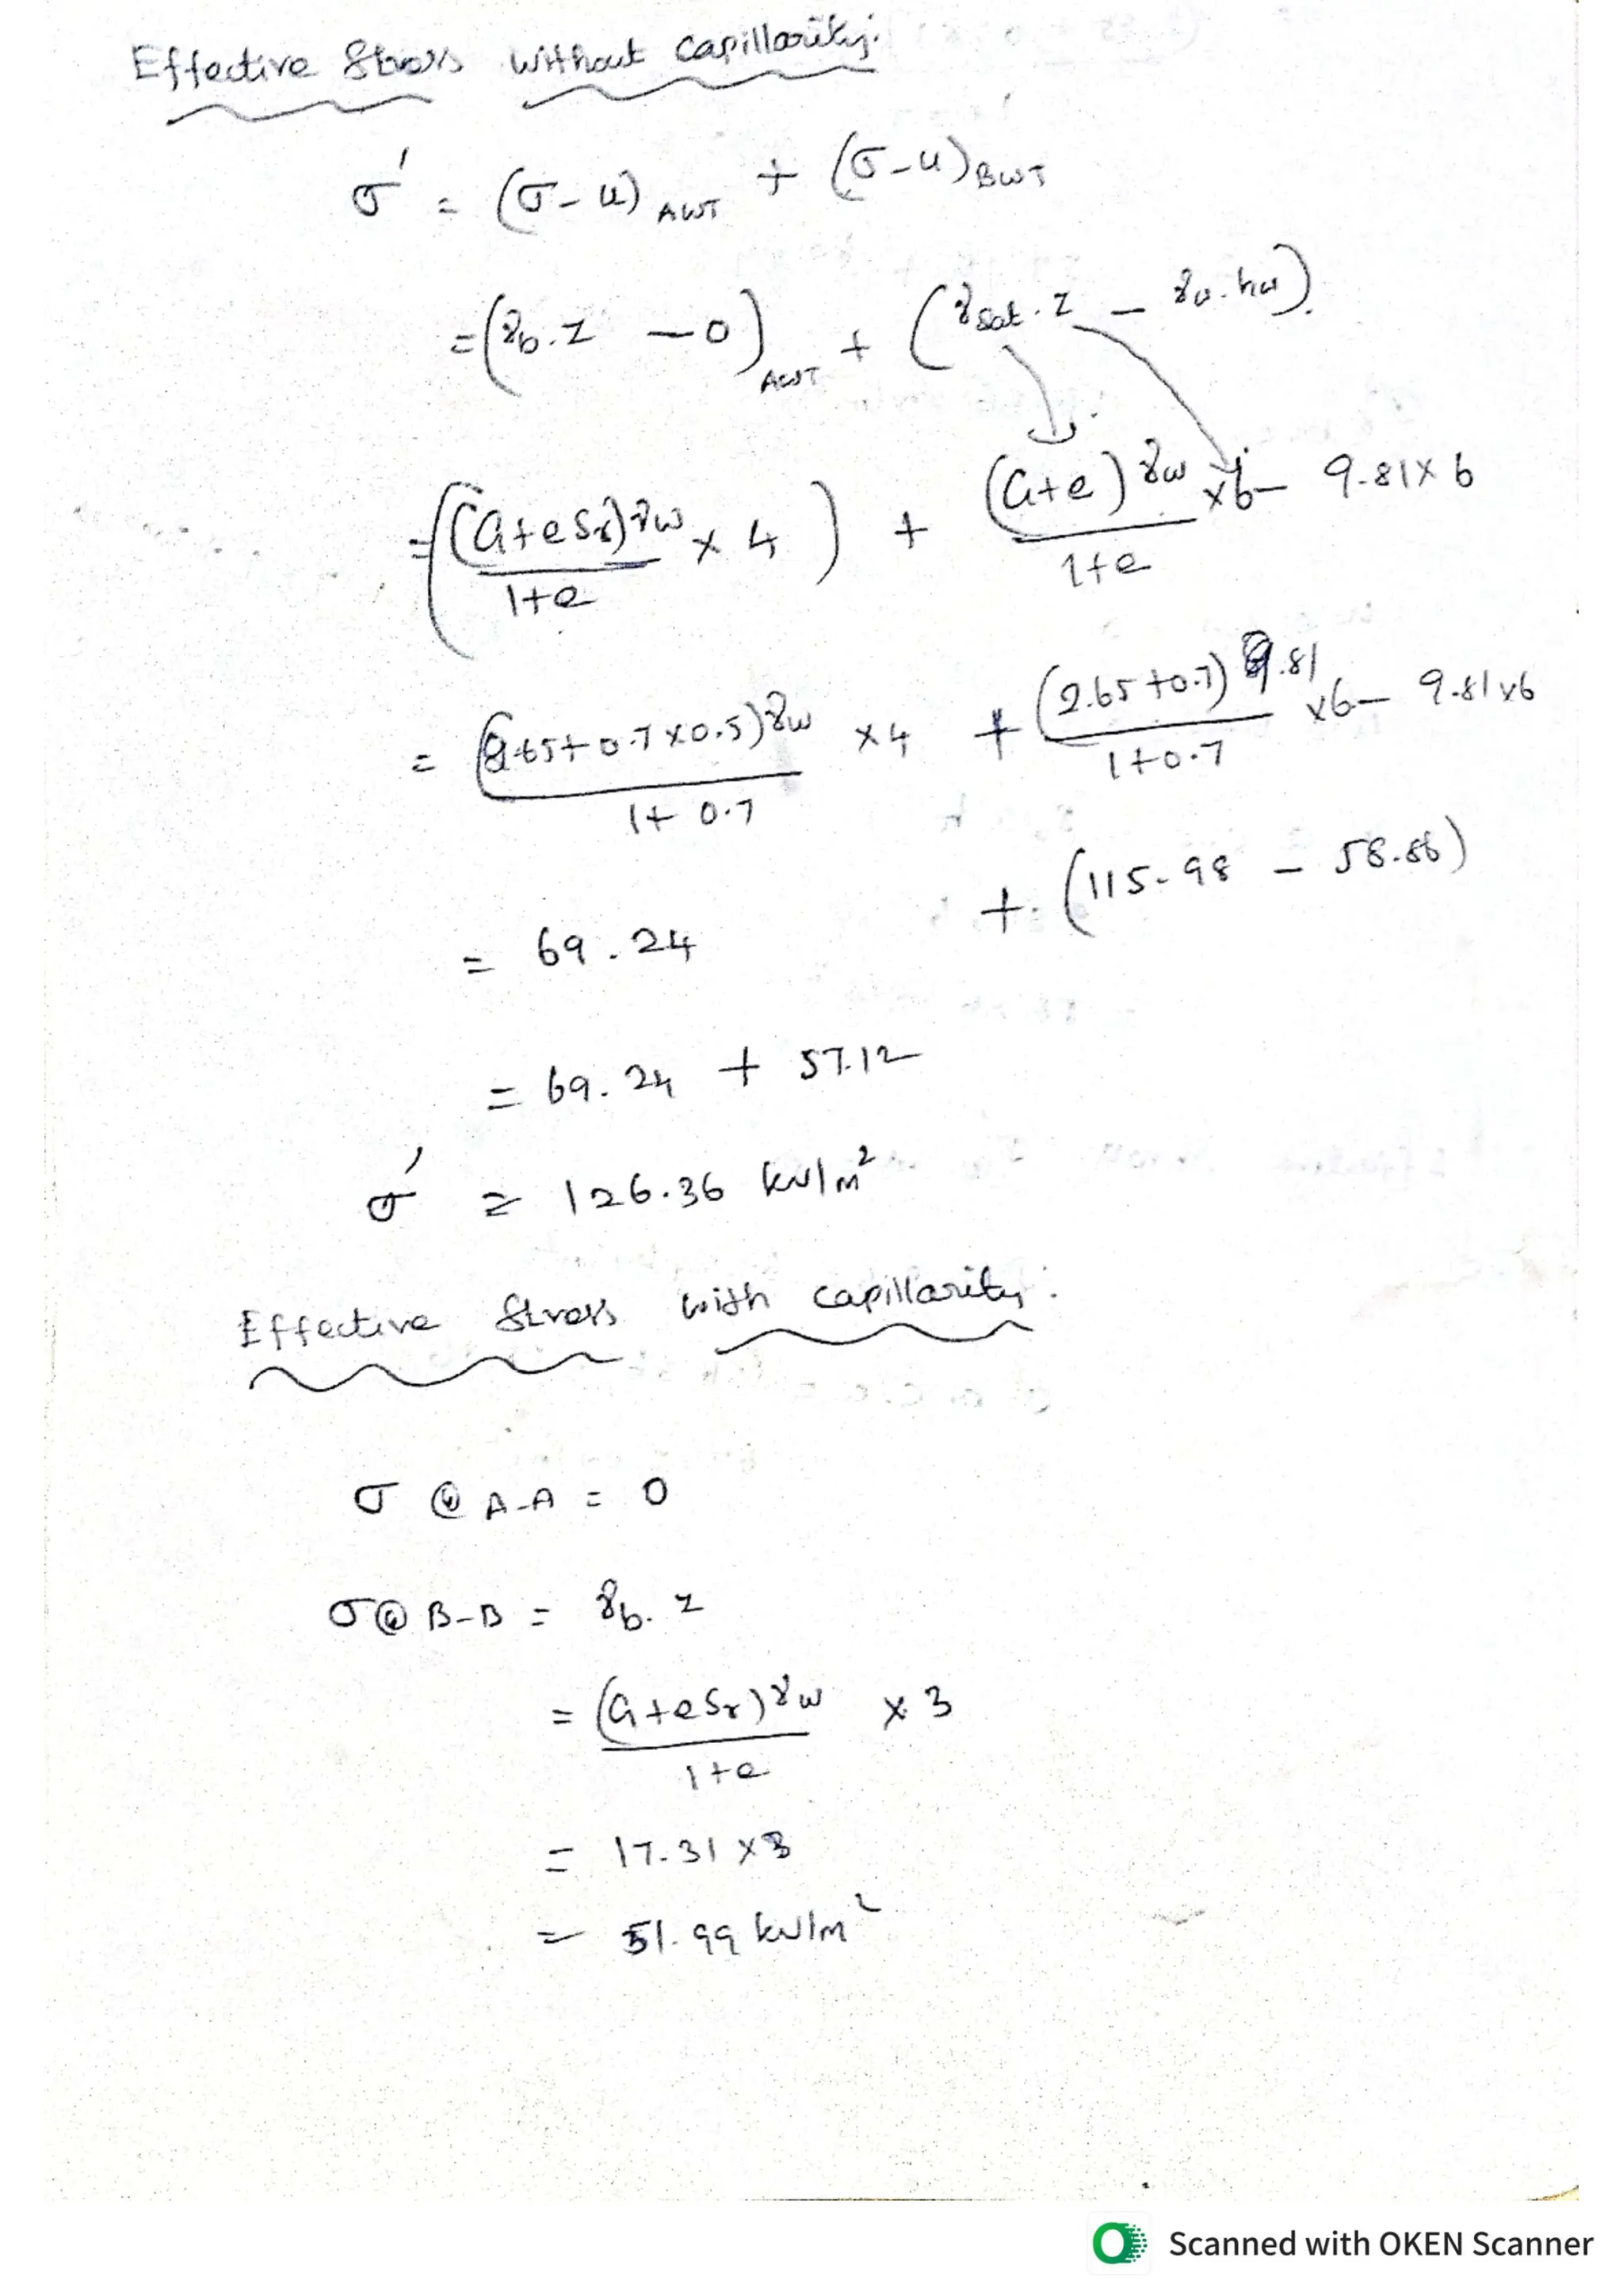 Effective Stress without capillarity:
σ' = (σ-u)AWT + (σ-u)BWT
= (γb.z - 0)AWT + (γsat.z - γw.hw).
= ((G+eSr)γw/1+e × 4) + (G+e)γw/1+e ×6 - 9.81×6
= (2.65+0.7×0.5)γw/1+0.7 ×4 + (2.65+0.7)9.81/1+0.7 ×6 - 9.81×6
= 69.24 + (115.98 - 58.86)
= 69.24 + 57.12
σ' = 126.36 kN/m²
Effective Stress with capillarity:
σ @ A-A = 0
σ @ B-B = γb.z
= (G+eSr)γw/1+e × 3
= 17.31 × 3
= 51.99 kN/m²
Scanned with OKEN Scanner